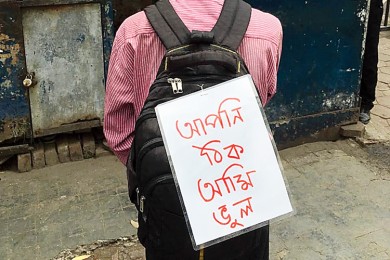 আপনি
ঠিক
আমি
ভুল